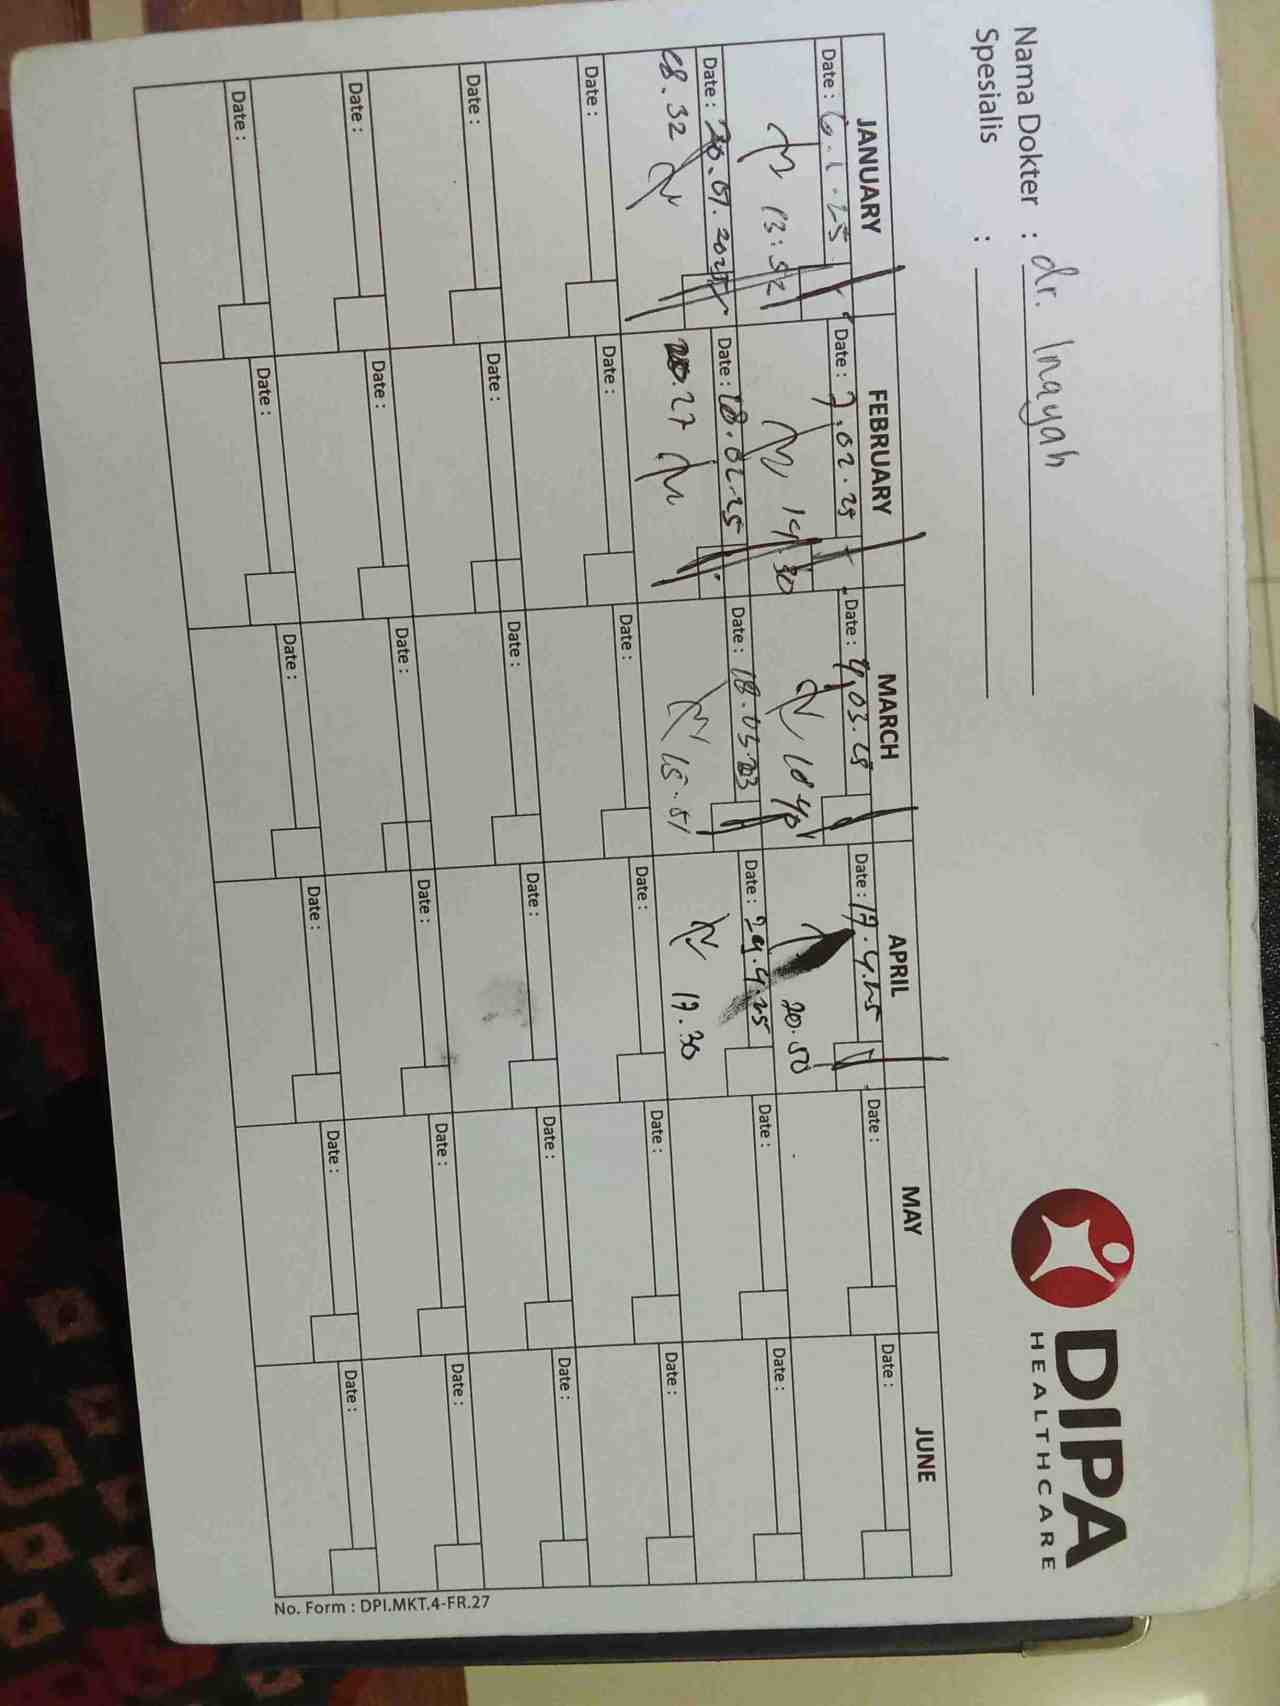 Nama Dokter : dr. Inayah
Spesialis :
DIPA
HEALTHCARE
JANUARY FEBRUARY MARCH APRIL MAY JUNE
Date : 6.1.25 Date : 7.02.25 Date : 4.03.25 Date : 17.4.25 Date : Date :
13:52 19.30 20.50
Date : 20.01.2025 Date : 18.02.25 Date : 18.03. Date : 24.4.25 Date : Date :
08.32 .27 15.51 17.30
Date : Date : Date : Date : Date : Date :
Date : Date : Date : Date : Date : Date :
Date : Date : Date : Date : Date : Date :
Date : Date : Date : Date : Date : Date :
No. Form : DPI.MKT.4-FR.27